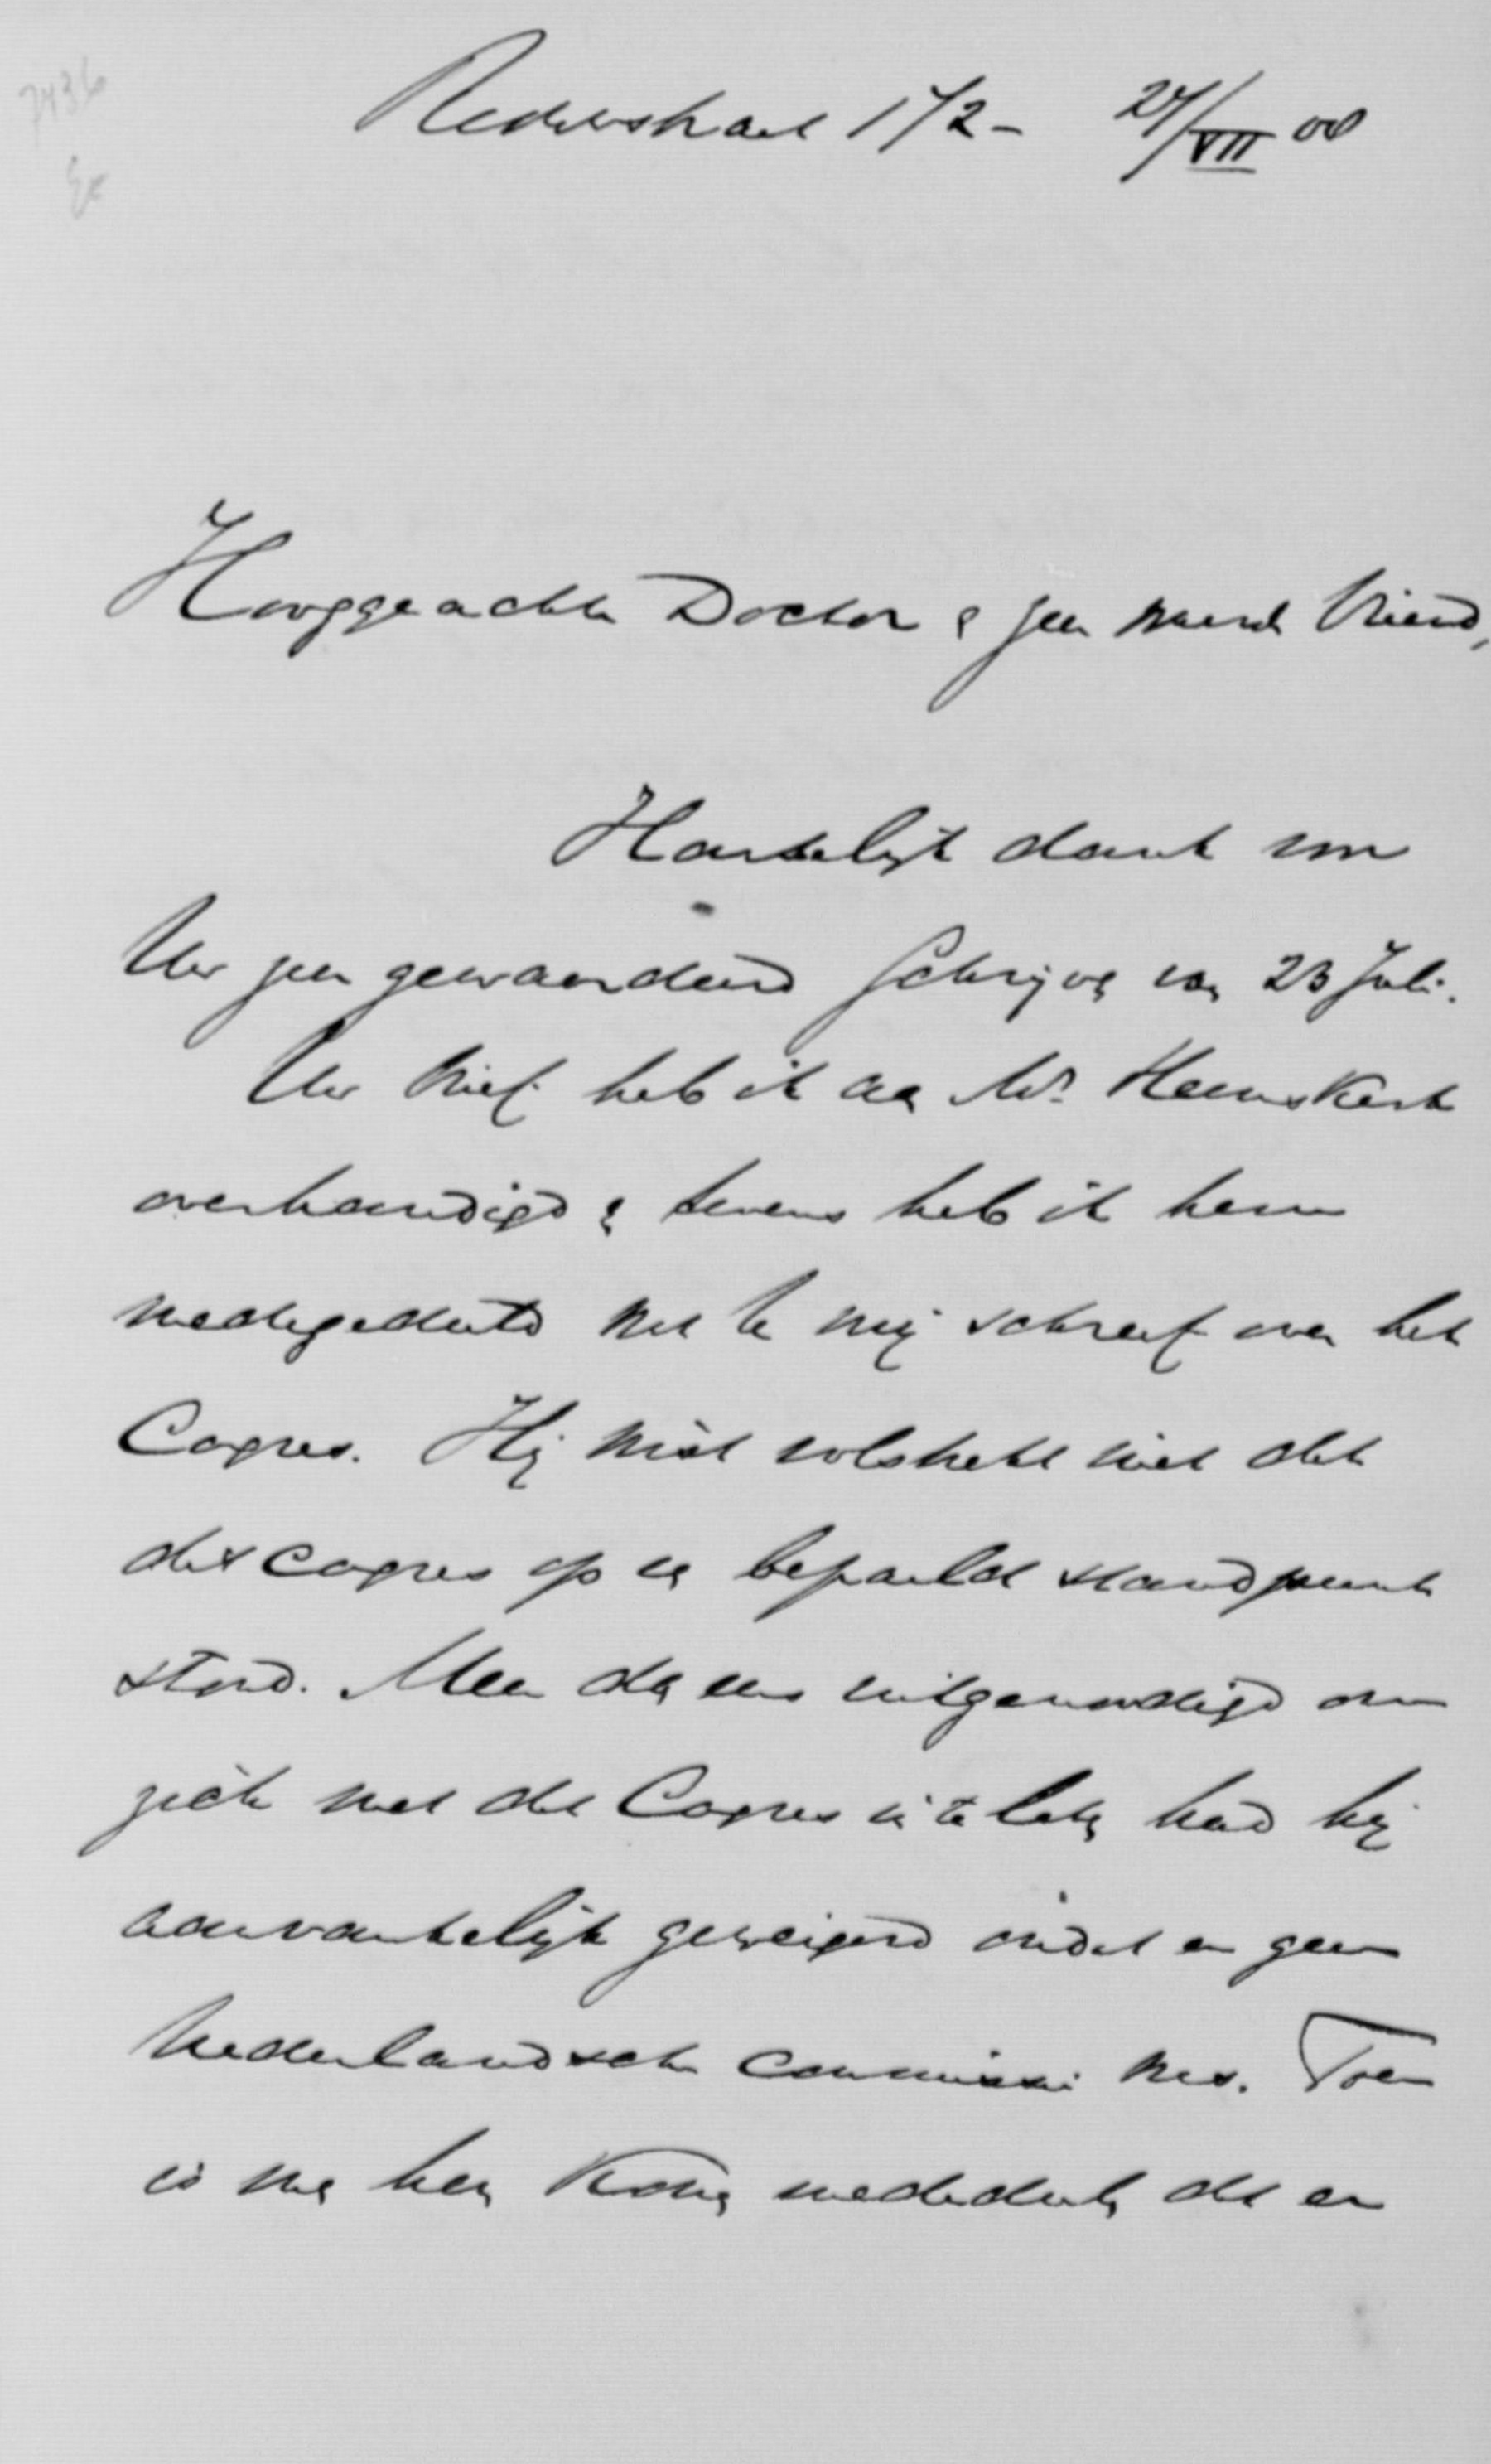 7436
172- 24/VII 00
Hooggeachte Doctor & zeer waarde Vriend,
Hartelijk dank voor
Uw zeer gewaardeerd schrijven van 23 Juli.
Uw brief heb ik aan Mr. Heemskerk
overhandigd & tevens heb ik hem
medegedeeld wat U mij schreef over het
Congres. Hij wist volstrekt niet dat
dit congres op een bepaald standpunt
stond. Meer dan eens uitgenoodigd om
zich met dit Congres in te laten had hij
aanvankelijk geweigerd omdat er geen
Nederlandsche commissie was. Toen
is me later mededeelen dat er